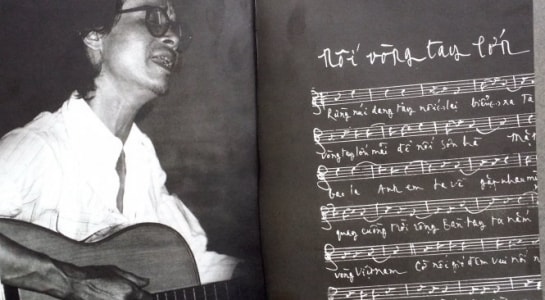 Nối vòng tay lớn
Rừng núi dang tay nối lại biển xa Ta
vòng tay lớn mãi để nối sơn hà
bao la Anh em ta về gặp nhau
quay cuồng trời rộng Bàn tay ta nắm
vòng Việt Nam Cờ nối gió đêm vui nối